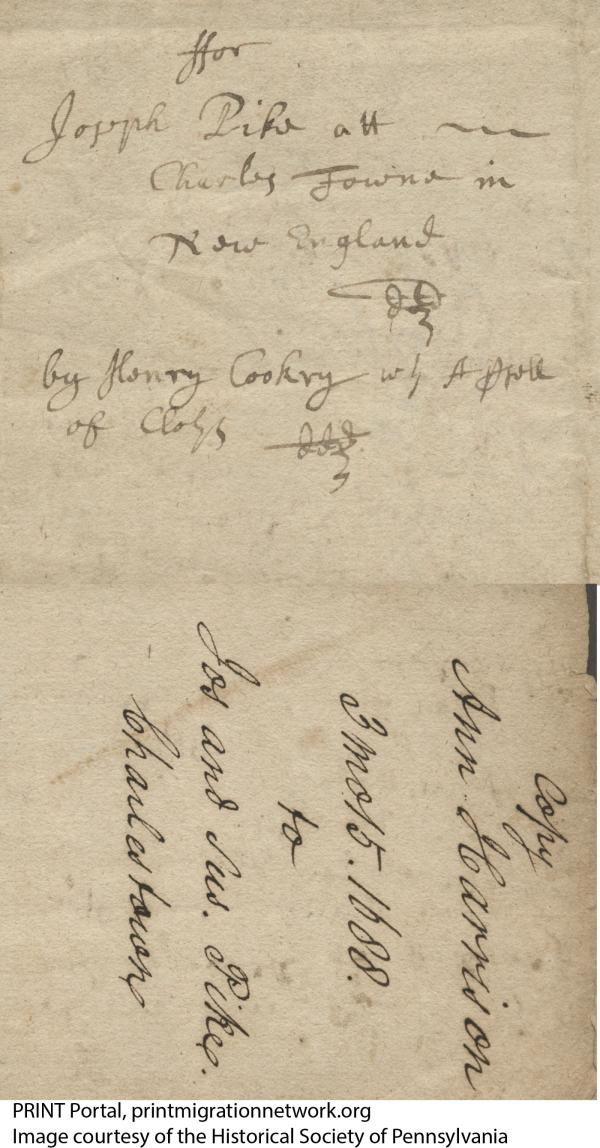 ffor
Joseph Pike att
Charles Towne in
New England
by Henry Cookry
of Cloths
Copy
Ann Harrison
3 mo 15. 1688.
to
Jos and Sus. Pike.
Charlestown
PRINT Portal, printmigrationnetwork.org
Image courtesy of the Historical Society of Pennsylvania